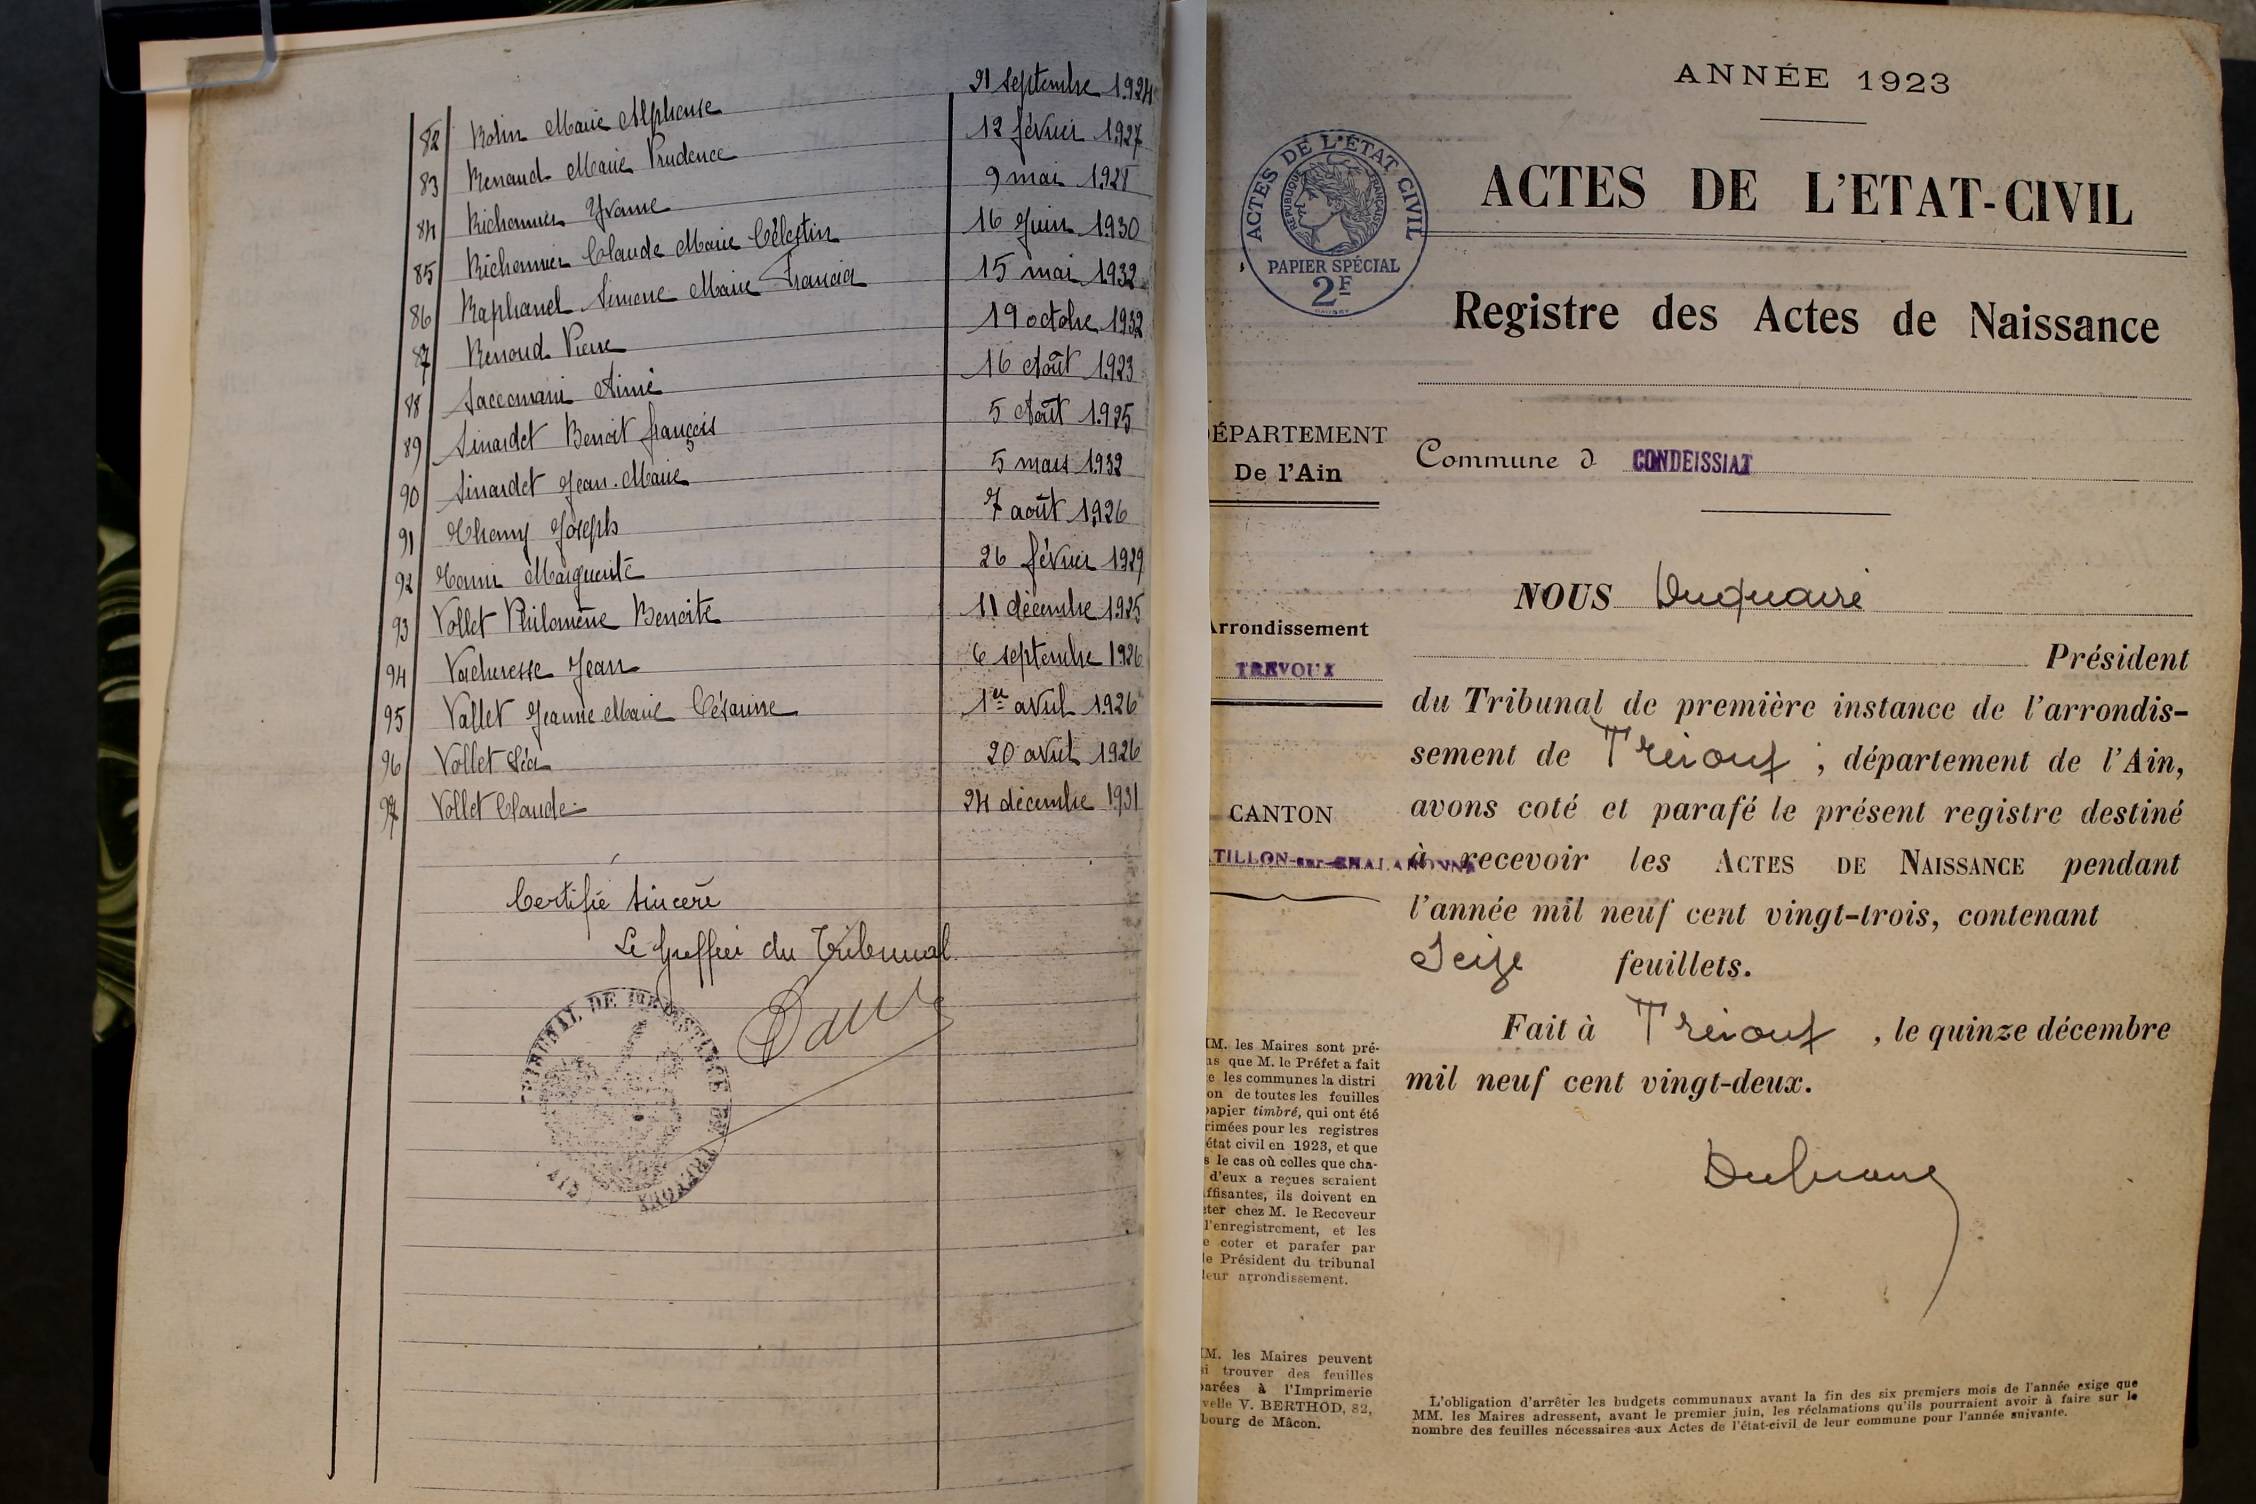 82 Robin Marie Alphonse 21 septembre 1924
83 Renaud Marie Prudence 12 février 1927
84 Richonnier Yvonne 9 mai 1928
85 Richonnier Claude Marie Célestin 16 Juin 1930
86 Raphanel Simone Marie Francia 15 mai 1932
87 Renoud Pierre 19 octobre 1932
88 Saccomani Aimé 16 Août 1923
89 Sinardet Benoit François 5 Août 1925
90 Sinardet Jean-Marie 5 mars 1932
91 Joseph 7 août 1926
92 Marguerite 26 février 1929
93 Vollet Philomène Benoite 11 décembre 1925
94 Vacheresse Jean 6 septembre 1926
95 Vallet Jeanne Marie Césarine 1er avril 1926
96 Vollet Léa 20 avril 1926
97 Vollet Claude 24 décembre 1931
Certifié sincère
Le Greffier du Tribunal
ANNÉE 1923
ACTES DE L'ÉTAT CIVIL
RÉPUBLIQUE FRANÇAISE
PAPIER SPÉCIAL
2F
ACTES DE L'ETAT-CIVIL
Registre des Actes de Naissance
ÉPARTEMENT
De l'Ain
Commune d CONDEISSIAT
NOUS Duquaire
rrondissement
TREVOUX
Président
du Tribunal de première instance de l'arrondis-
sement de Trévoux ; département de l'Ain,
CANTON
avons coté et parafé le présent registre destiné
TILLON-sur-CHALARONNE
à recevoir les ACTES DE NAISSANCE pendant
l'année mil neuf cent vingt-trois, contenant
Seize feuillets.
Fait à Trévoux , le quinze décembre
mil neuf cent vingt-deux.
M. les Maires sont pré-
ns que M. le Préfet a fait
e les communes la distri
on de toutes les feuilles
papier timbré, qui ont été
rimées pour les registres
état civil en 1923, et que
s le cas où celles que cha-
d'eux a reçues seraient
ffisantes, ils doivent en
eter chez M. le Receveur
l'enregistrement, et les
e coter et parafer par
le Président du tribunal
leur arrondissement.
M. les Maires peuvent
si trouver des feuilles
parées à l'Imprimerie
velle V. BERTHOD, 82,
bourg de Mâcon.
L'obligation d'arrêter les budgets communaux avant la fin des six premiers mois de l'année exige que
MM. les Maires adressent, avant le premier juin, les réclamations qu'ils pourraient avoir à faire sur le
nombre des feuilles nécessaires aux Actes de l'état-civil de leur commune pour l'année suivante.